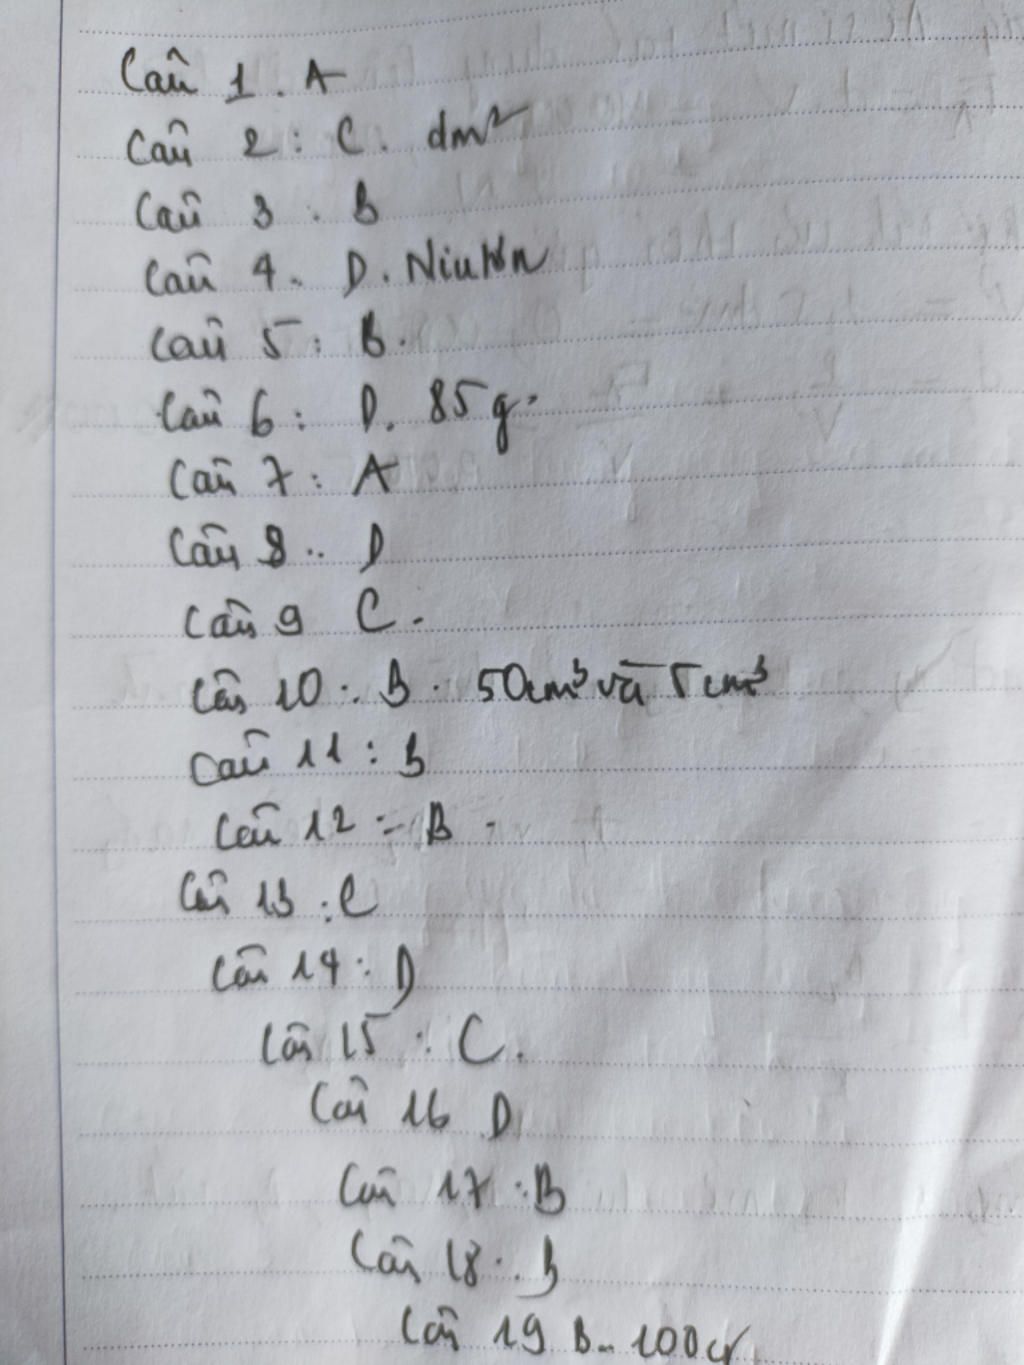 Câu 1. A
Câu 2: C. dm²
Câu 3. B
Câu 4. D. Niutơn
Câu 5: B.
Câu 6: D. 85g.
Câu 7: A
Câu 8: D
Câu 9 C.
Câu 10: B. 50cm³ và 5cm³
Câu 11: B
Câu 12: B.
Câu 13: C
Câu 14: D
Câu 15: C.
Câu 16 D
Câu 17: B
Câu 18: B
Câu 19 B. 100